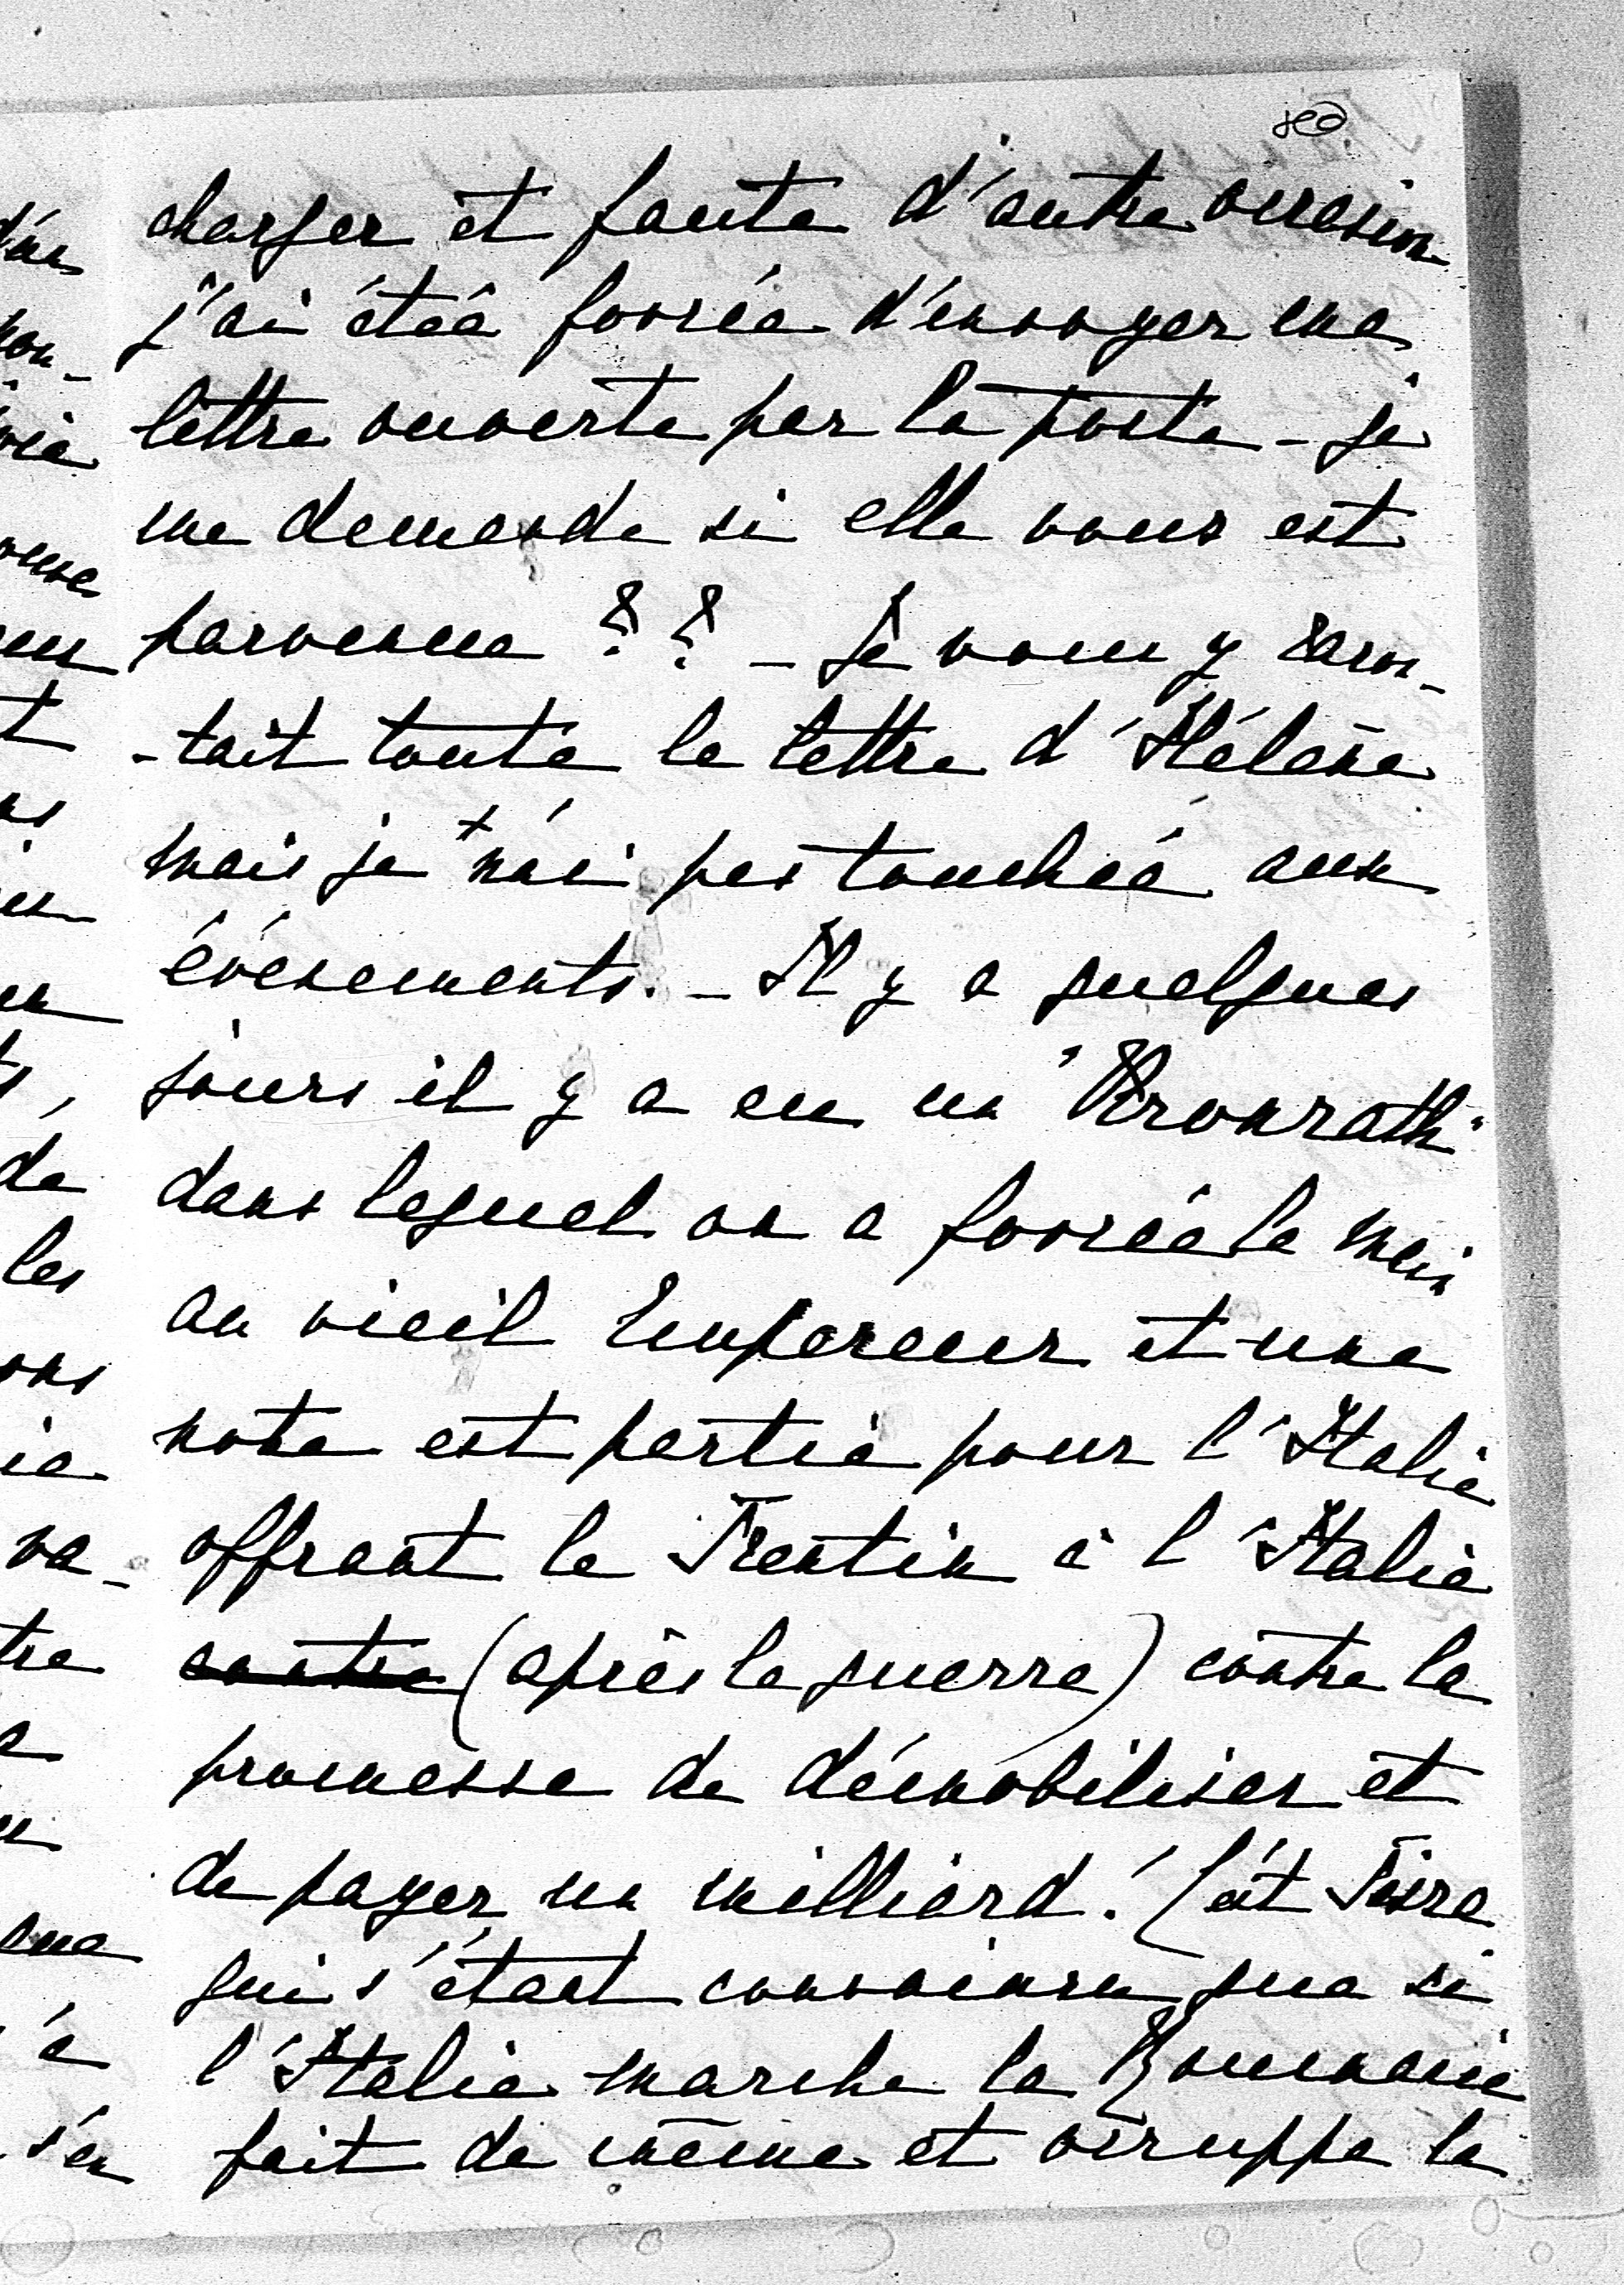 charger et faute d'autre occasion
j'ai étéé forcée d'envoyer une
lettre ouverte par la poste - je
me demande si elle vous est
parvenue ?? - Je vous y racon-
-tait toute la lettre d'Hélène
mais je n'ai pas touchéé aux
événements. - Il y a quelques
jours il y a eu un "Kronrath"
dans lequel on a forcéé la main
au vieil Empereur et une
note est partie pour l'Italie
offrant le Trentin à l'Italie
contre (après la guerre) contre la
promesse de démobiliser et
de payer un milliard! (c'ét Tisza
qui s'étant convaincu que si
l'Italie marche la Roumanie
fait de même et occuppe la